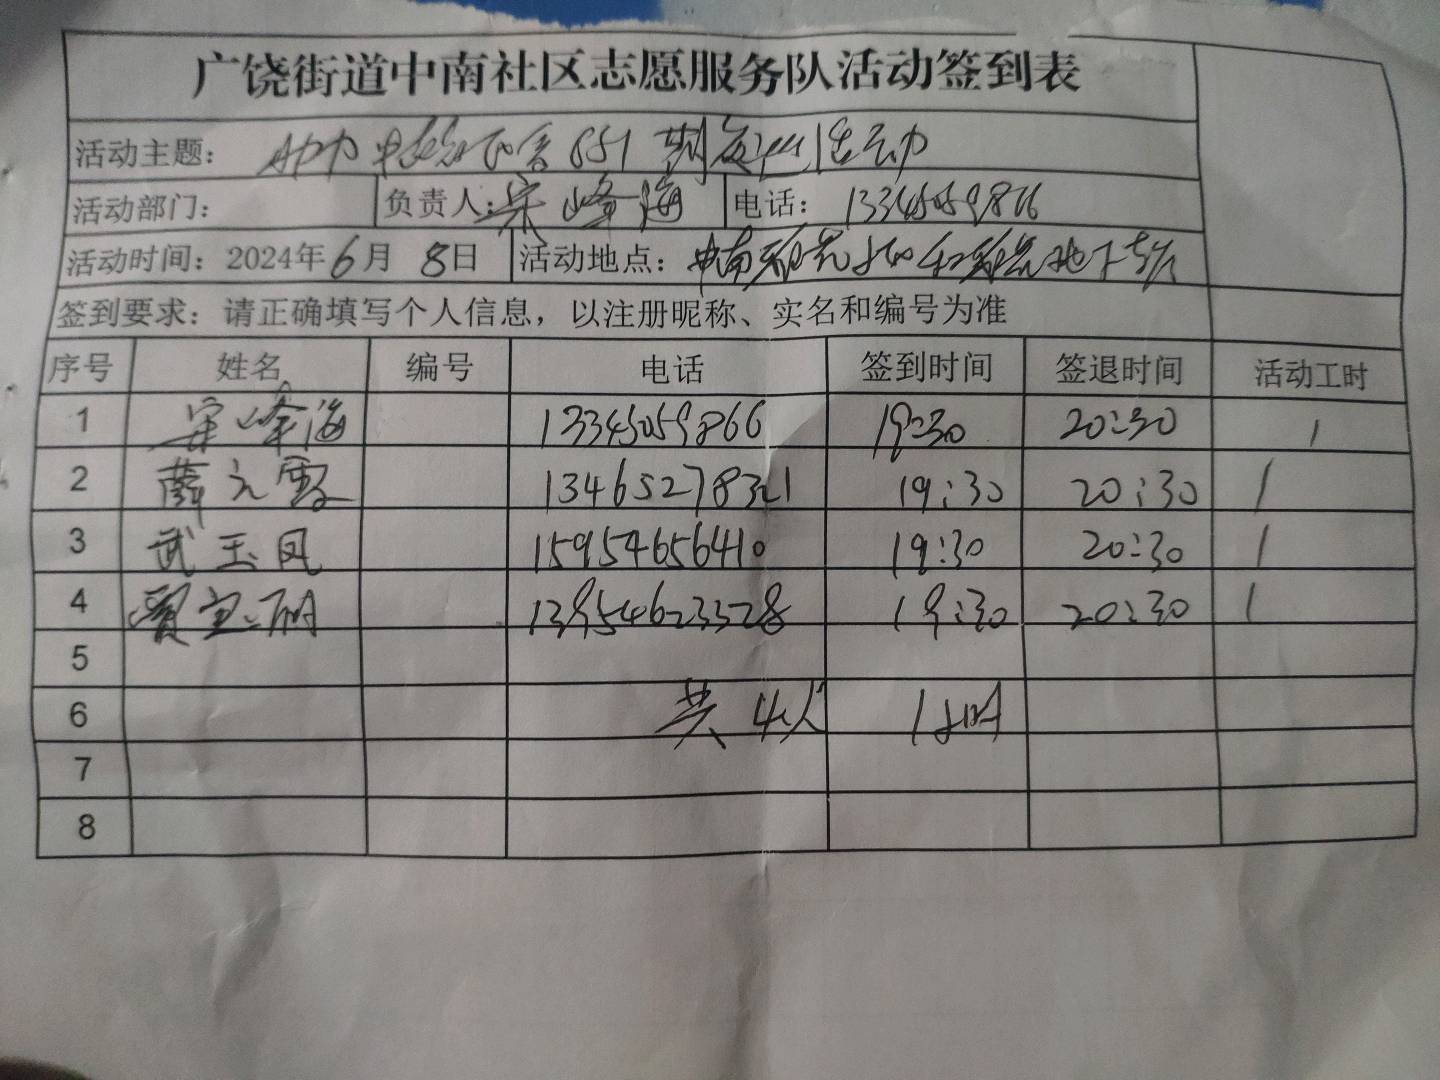 广饶街道中南社区志愿服务队活动签到表
活动主题: 助力 651 期 活动
活动部门: 负责人: 宋峰海 电话: 13345059866
活动时间: 2024年6月8日 活动地点: 中南 和 地下
签到要求: 请正确填写个人信息, 以注册昵称、实名和编号为准
序号 姓名 编号 电话 签到时间 签退时间 活动工时
1 宋峰海 13345059866 19:30 20:30 1
2 薛元霞 13465278321 19:30 20:30 1
3 武玉凤 15954656410 19:30 20:30 1
4 贾宝丽 13954623328 19:30 20:30 1
5
6 共4人 1小时
7
8